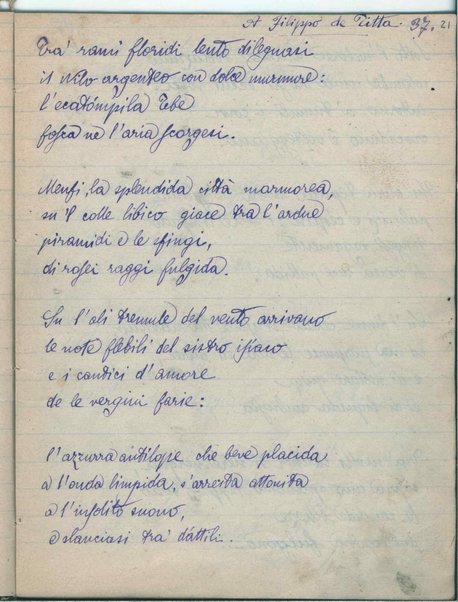 A Filippo de Titta. 37. 21
Tra' rami floridi lento dileguasi
il nilo argenteo con dolce murmure:
l'ecatómpila Tebe
fosca ne l'aria scorgesi.
Menfi, la splendida città marmorea,
su 'l colle libico giace tra l'ardue
piramidi e le sfingi,
di rosei raggi fulgida.
Su l'ali tremule del vento arrivano
le note flebili del sistro isiaco
e i cantici d'amore
de le vergini farie:
l'azzurra antilope che beve placida
a l'onda limpida, s'arresta attonita
a l'insolito suono,
e slanciasi tra' dáttili.